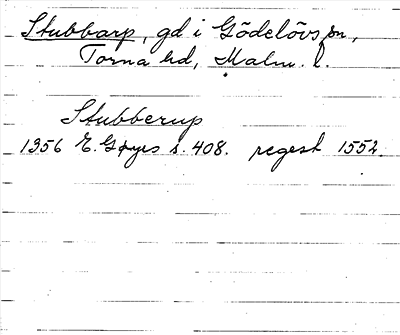 Stubbarp, gd i Gödelövs sn,
Torna hd, Malm. l.
Stubberup
1356 E. Gøyes s. 408. regest 1552.